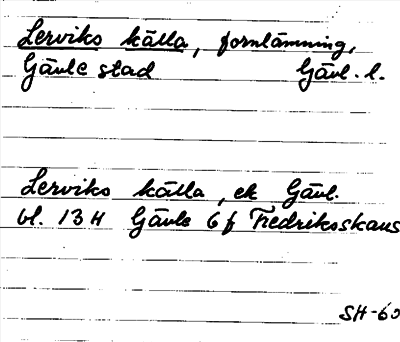 Lerviks källa, fornlämning,
Gävle stad Gävl. l.
Lerviks källa, ek Gävl.
bl. 13 H Gävle 6 f Fredriksskans
SH-60